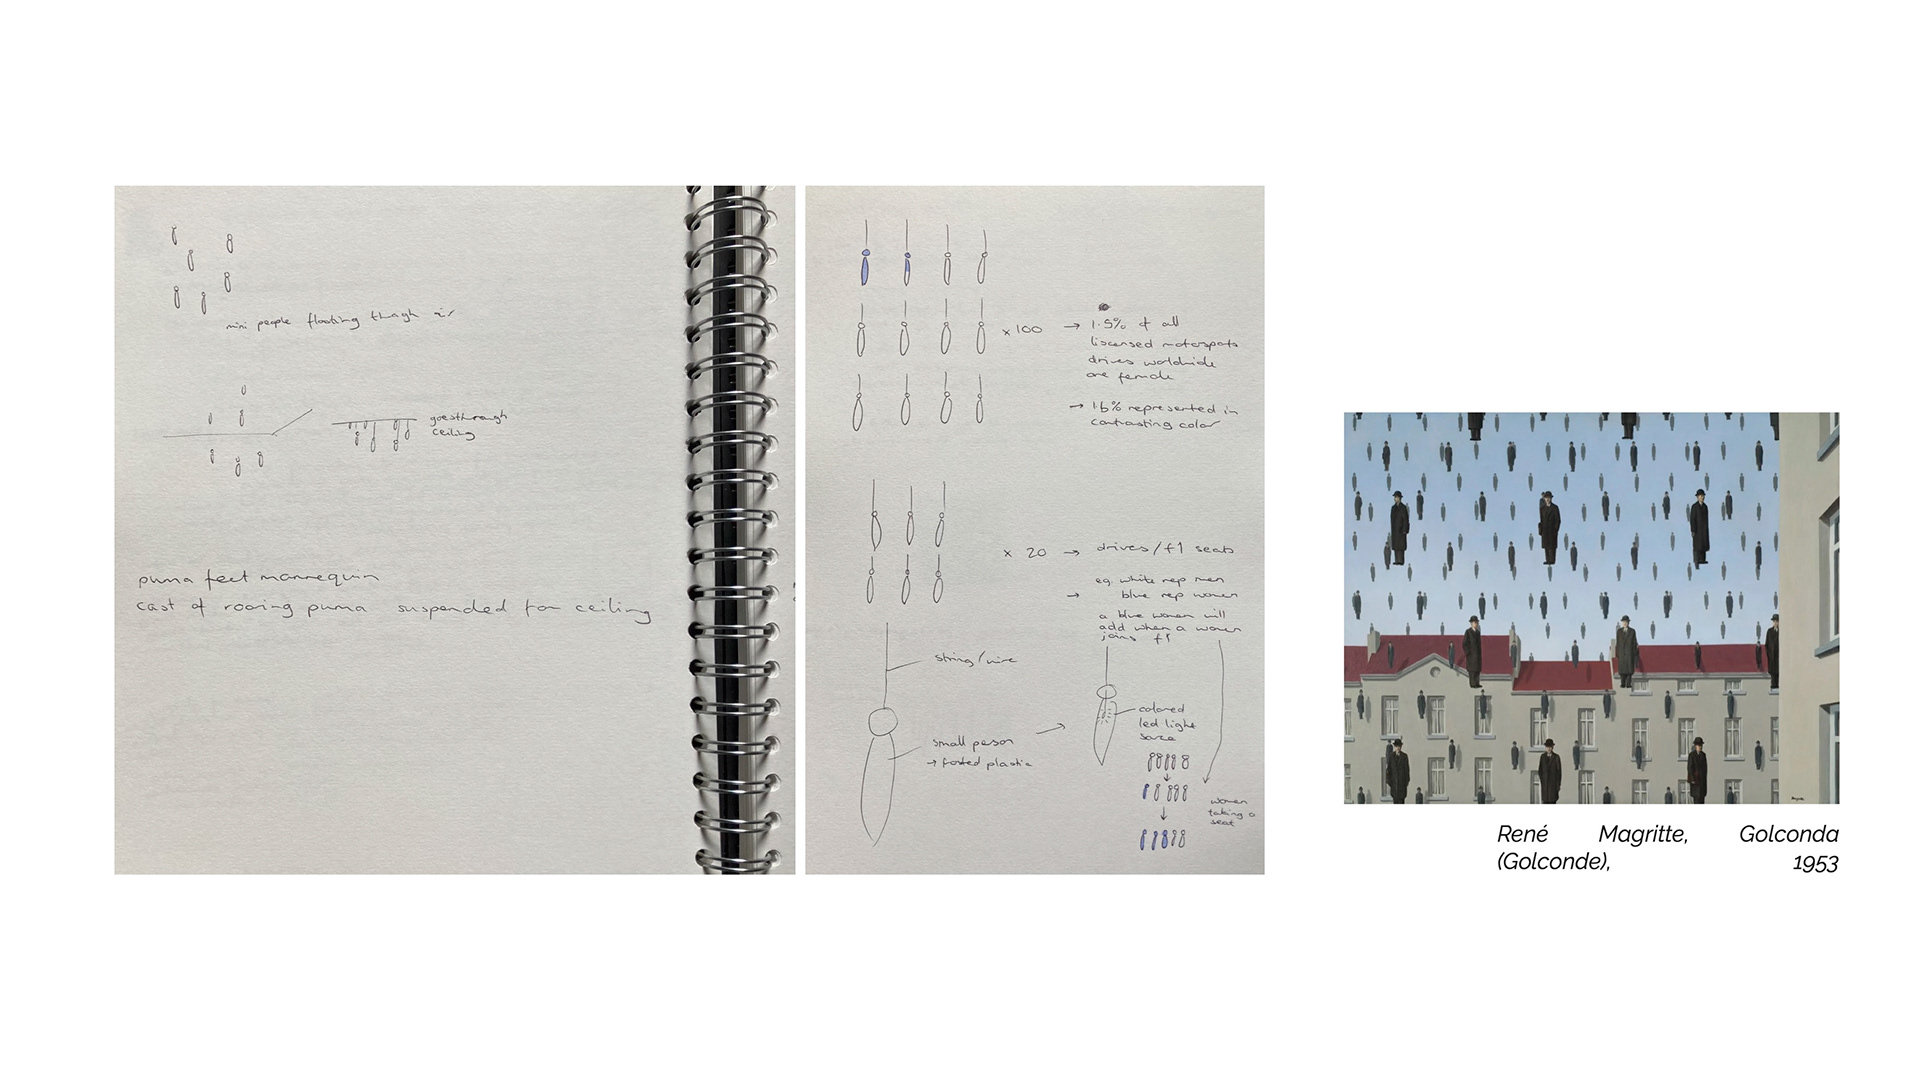 mini people floating through air
goesthrough
ceiling
puma feet mannequin
cast of roaring puma suspended from ceiling
x 100 → 1.5% of all
liscensed motorsports
drivers worldwide
are female
→ 1.6% represented in
contrasting color
x 20 → drivers/f1 seats
eg. white rep men
→ blue rep women
a blue women will
add when a women
joins f1
string/wire
colored
led light
small person
→ frosted plastic
women
taking a
seat
René Magritte, Golconda
(Golconde), 1953